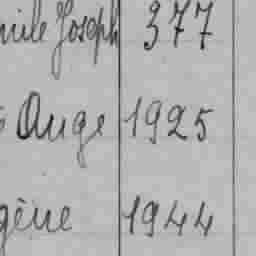 mile Joseph 377
s Ange 1925
gène 1944